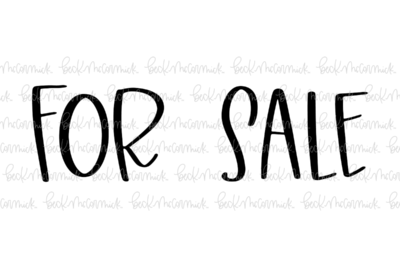 FOR SALE